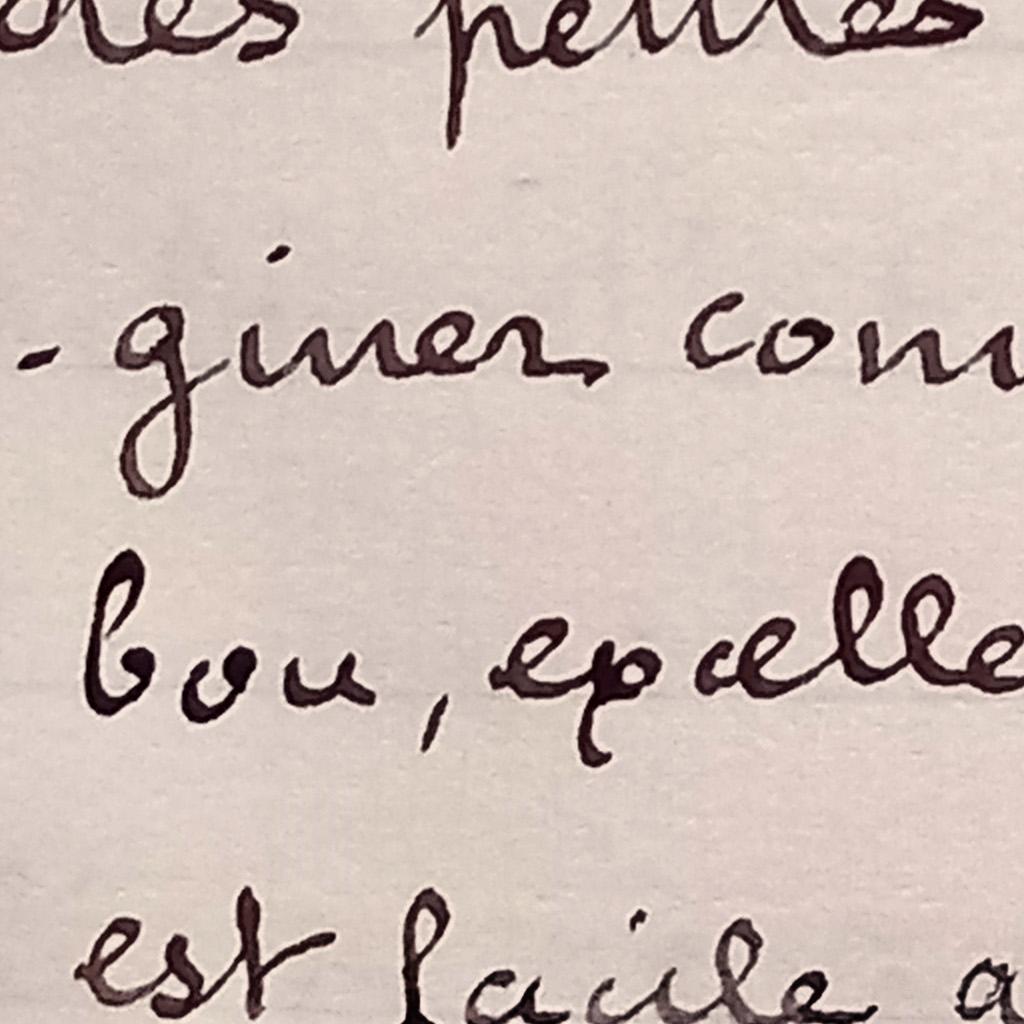 des petites
- giner com
bou, excelle
est facile a